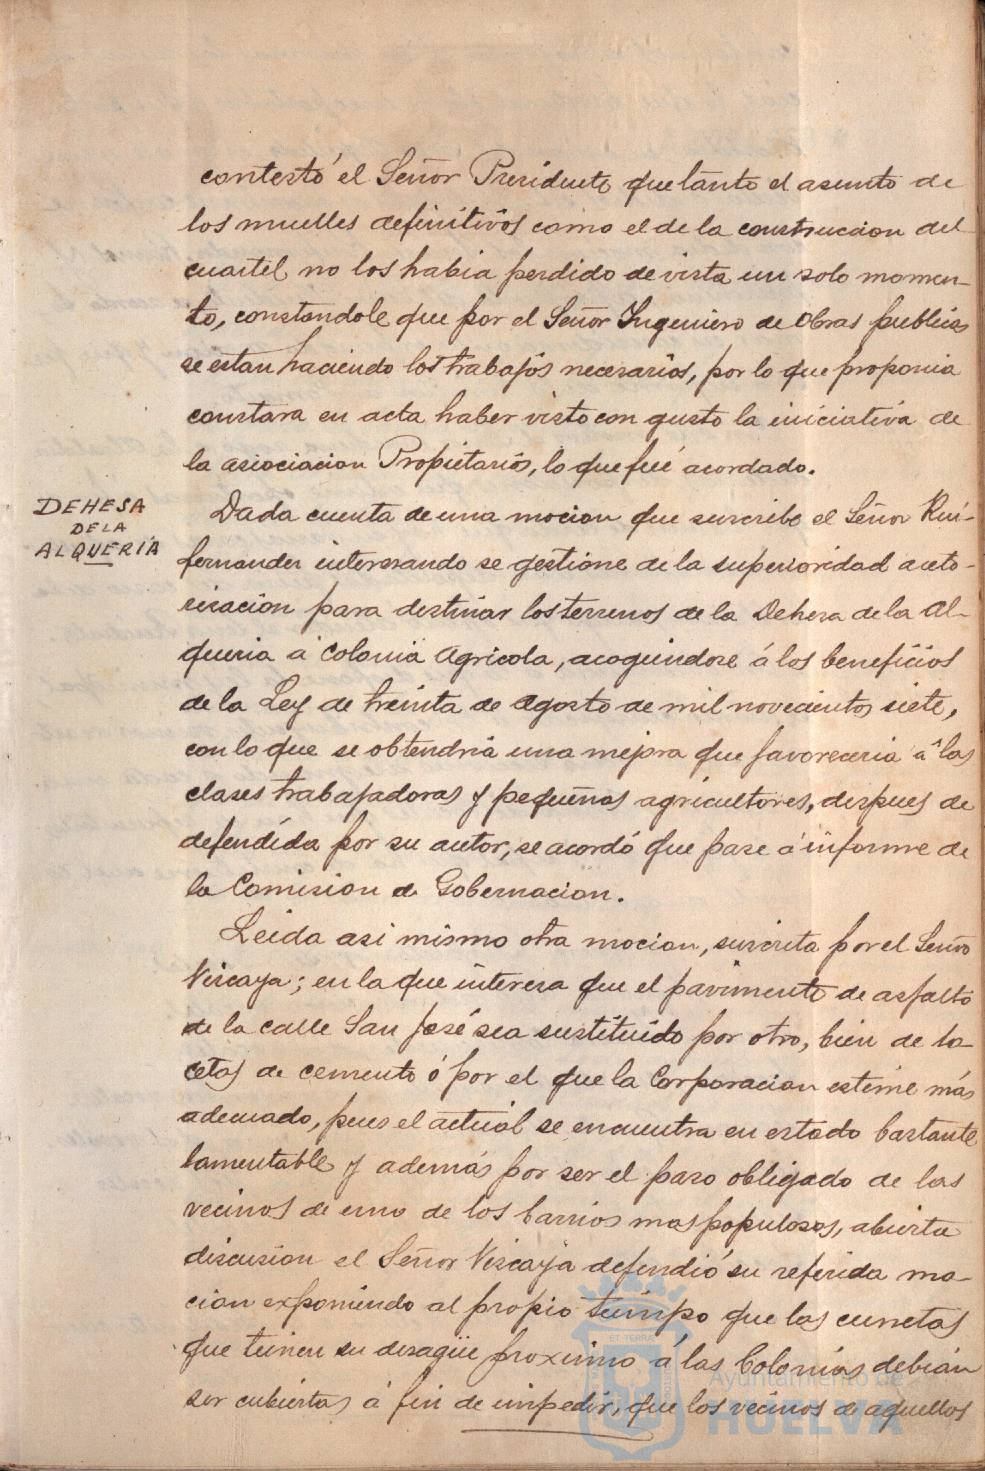 contestó el Señor Presidente que tanto el asunto de
los muelles definitivos como el de la construccion del
cuartel no los habia perdido de vista un solo momen-
to, constandole que por el Señor Ingeniero de Obras publicas
se estan haciendo los trabajos necesarios, por lo que proponia
constara en acta haber visto con gusto la iniciativa de
la asiociacion Propietarios, lo que fué acordado.
DEHESA
DE LA
ALQUERÍA
Dada cuenta de una mocion que suscribe el Señor Rui-
fernandez interesando se gestione de la superioridad auto-
rizacion para destinar los terrenos de la Dehesa de la Al-
queria á Colonia Agricola, acogiendose á los beneficios
de la Ley de treinta de Agosto de mil novecientos siete,
con lo que se obtendria una mejora que favoreceria á las
clases trabajadoras y pequeños agricultores, despues de
defendida por su autor, se acordó que pase á informe de
la Comision de Gobernacion.
Leida asi mismo otra mocion, suscrita por el Señor
Vizcaya; en la que interesa que el pavimento de asfalto
de la calle San José sea sustituido por otro, bien de lo-
cetas de cemento ó por el que la Corporacion estime más
adecuado, pues el actual se encuentra en estado bastante
lamentable y además por ser el paso obligado de los
vecinos de uno de los barrios mas populosos, abierta
discusion el Señor Vizcaya defendió su referida mo-
cion exponiendo al propio tiempo que las cunetas
que tienen su desagüe proximo á las Colonias debian
ser cubiertas á fin de impedir, que los vecinos de aquellos
ET TERRÆ
Ayuntamiento de
HUELVA